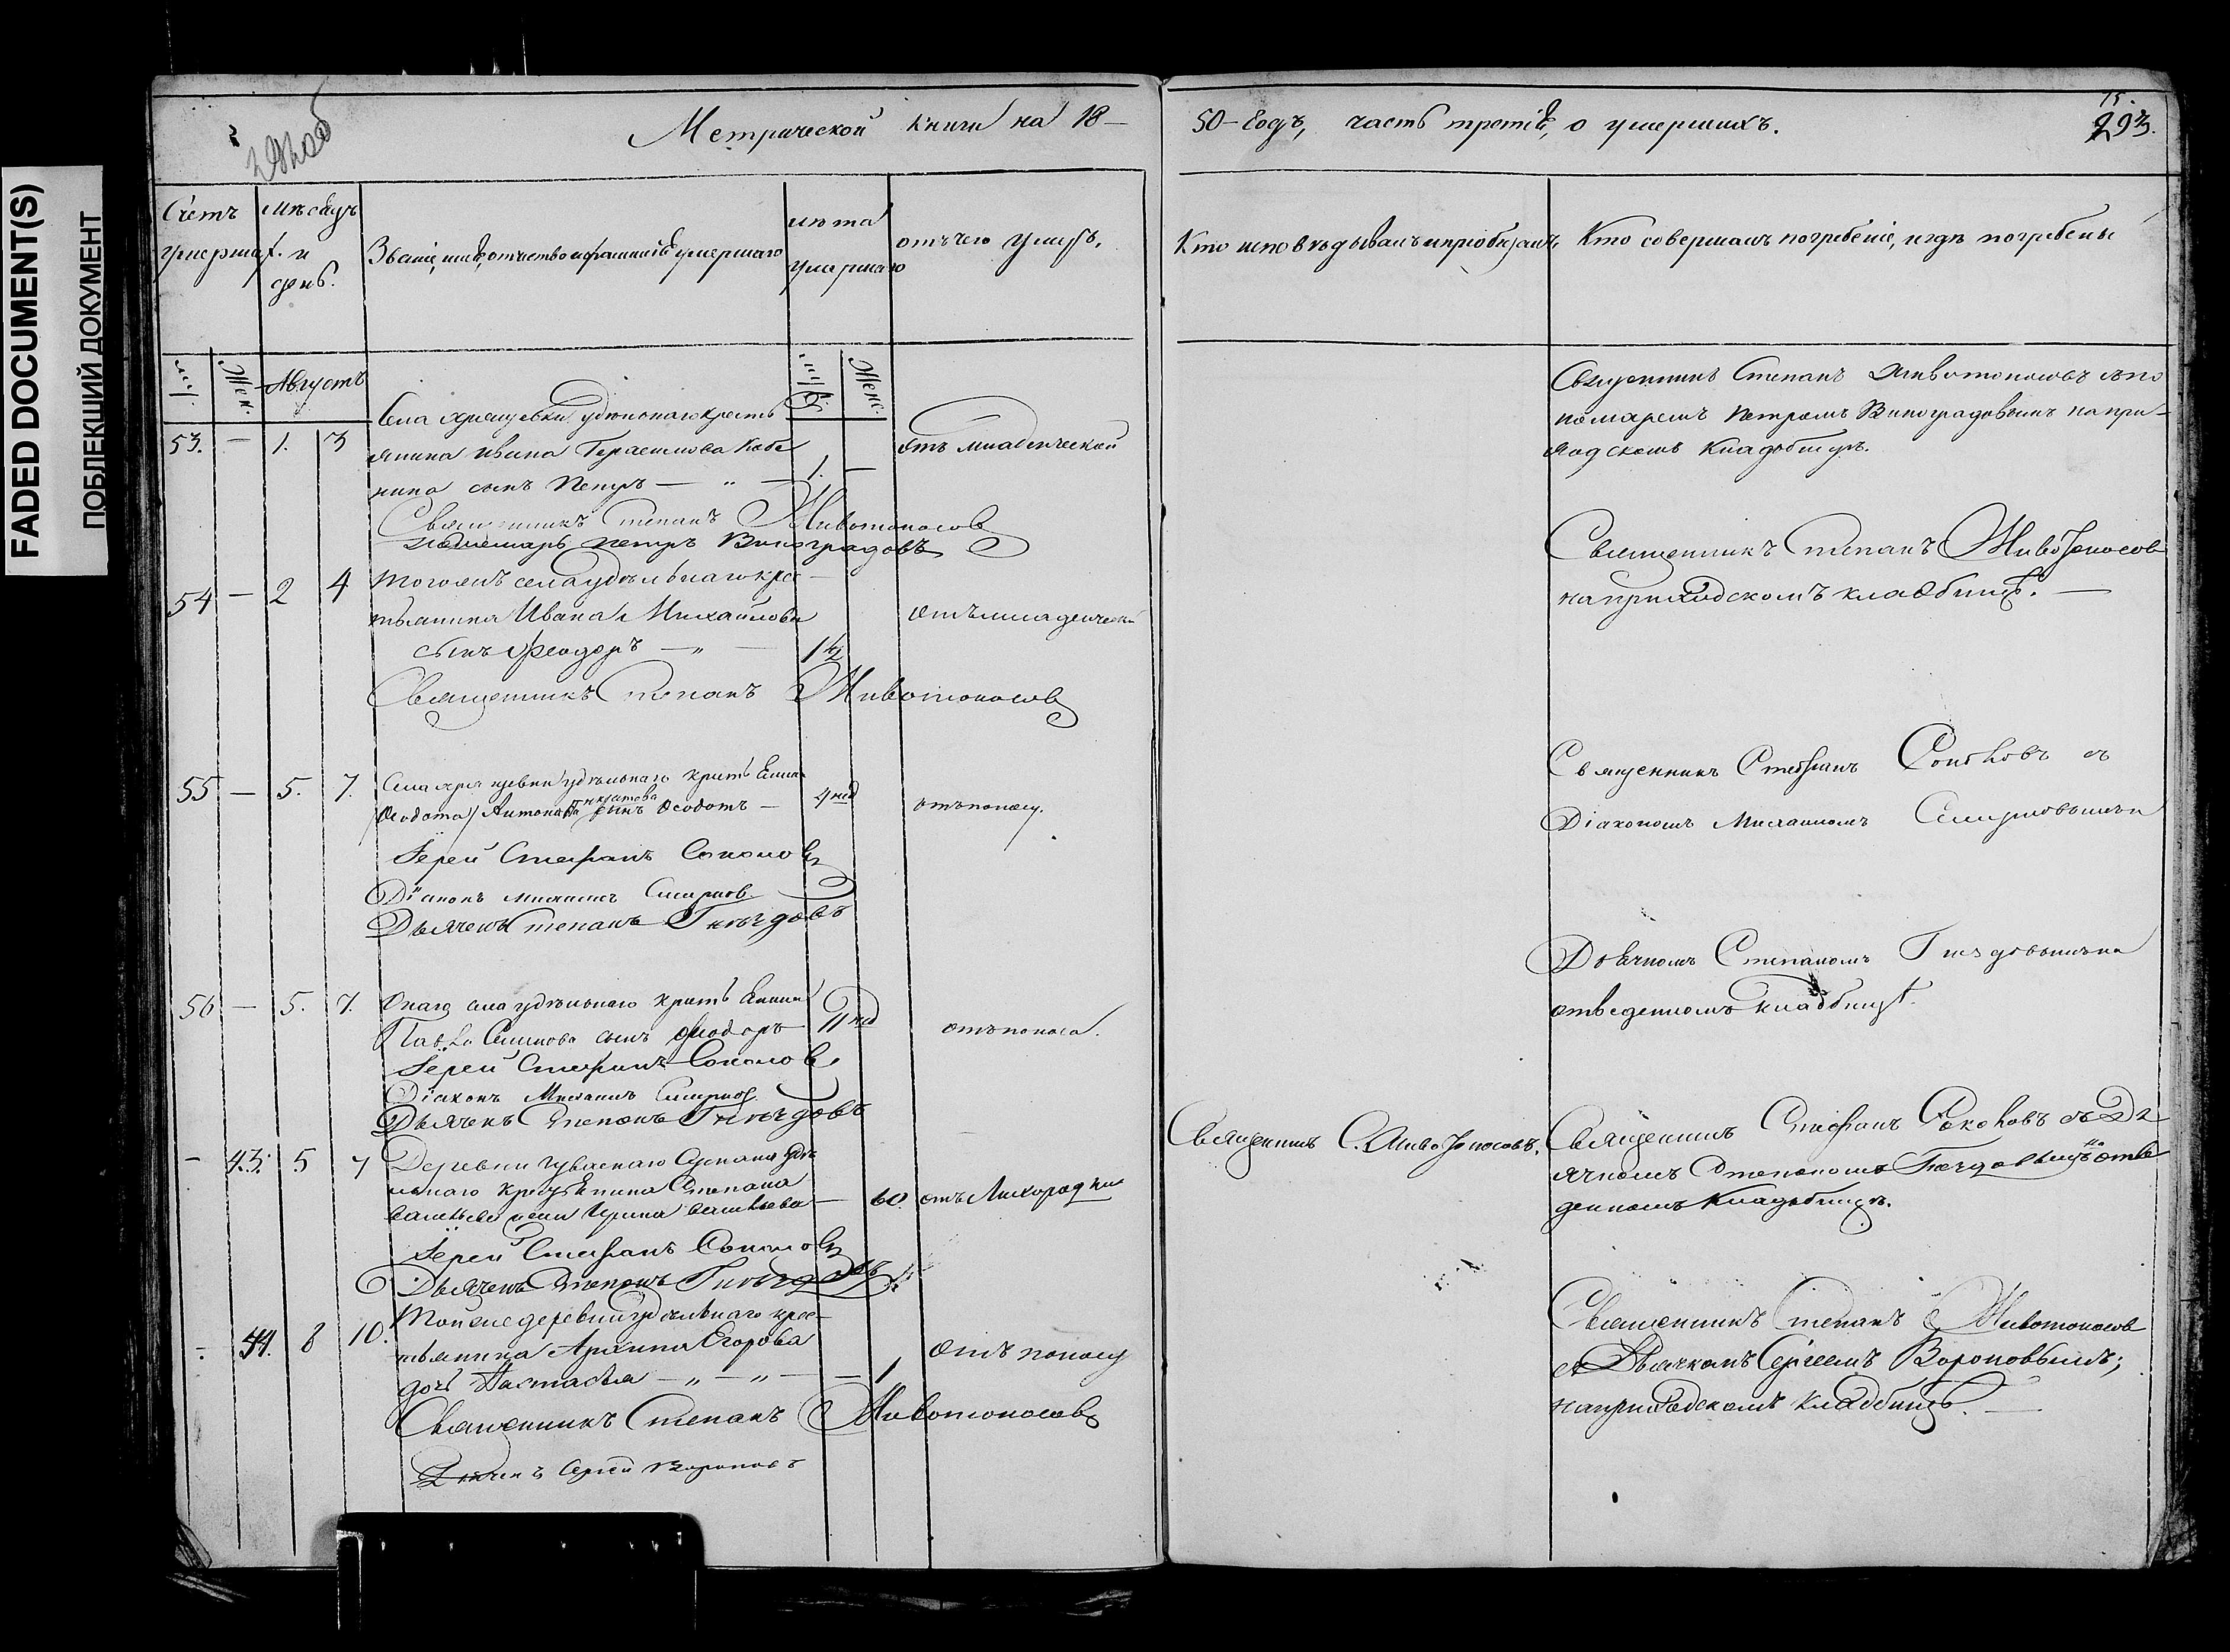 FADED DOCUMENT(S)
ПОБЛЕКШИЙ ДОКУМЕНТ
Метрической книги на 18-
50-годъ, часть третія, о умершихъ.
15.
293.
Счетъ умерших.
Мѣсяцъ и день.
Званіе, имя, отчество и фамилія умершаго
лѣта умершаго
отъ чего умеръ.
Кто исповѣдывалъ и пріобщалъ
Кто совершалъ погребеніе, и гдѣ погребены
Жен.
Августъ
Женс.
53. — 1. 3
Села Хрящевки удѣльнаго кресть
янина Ивана Герасимова Кабе
нина сынъ Петръ — " — 1. —
отъ младенческой
Священникъ Степанъ Животоносовъ
пономарь Петръ Виноградовъ
Священникъ Степанъ Животоносовъ съ по
номаремъ Петромъ Виноградовымъ на при-
ходскомъ кладбищѣ.
54 — 2 4
Тогожъ села удѣльнаго крес-
тьянина Ивана Михайлова
сынъ Феодоръ — " — 1 1/2
отъ младенческой
Священникъ Степанъ Животоносовъ
Священникъ Степанъ Животоносов
на приходскомъ кладбищѣ. —
55 — 5. 7.
Села Хрящевки удѣльнаго крестьянина
Феодота Антонова сынъ Феодотъ — 4 нед
отъ поносу.
Іерей Стефанъ Соколовъ
Діаконъ Михаилъ Смирнов
Дьячекъ Степанъ Гнѣздовъ
Священникъ Стефанъ Соколовъ съ
Діакономъ Михаиломъ Смирновымъ и
Дьячкомъ Степаномъ Гнездовымъ на
отведенномъ кладбищѣ.
56 — 5. 7.
Онаго села удѣльнаго крестьянина
Павла Семенова сынъ Феодоръ 11 нед
отъ поноса.
Іерей Стефанъ Соколов
Діаконъ Михаилъ Смирнов
Дьячекъ Степанъ Гнѣздовъ
— 43. 5 7
Деревни Чуваскаго Сускана удѣ
льнаго крестьянина Степана
Васильева жена Ирина Васильева — 60.
отъ Лихорадки
Іерей Стефанъ Соколовъ
Дьячекъ Степанъ Гнѣздовъ
Священникъ С. Животоносовъ.
Священникъ Стефанъ Соколовъ съ Дь
ячкомъ Степаномъ Гнездовымъ на отве
денномъ кладбищѣ.
— 44. 8 10.
Тойже деревни удѣльнаго крес-
тьянина Егорова
дочь Настасья — " — " — — 1
отъ поносу
Священникъ Степанъ Животоносовъ
Дьячекъ Сергей Вороновъ
Священникъ Степанъ Животоносов
съ Дьячкомъ Сергеемъ Вороновымъ;
на приходскомъ кладбищѣ. —